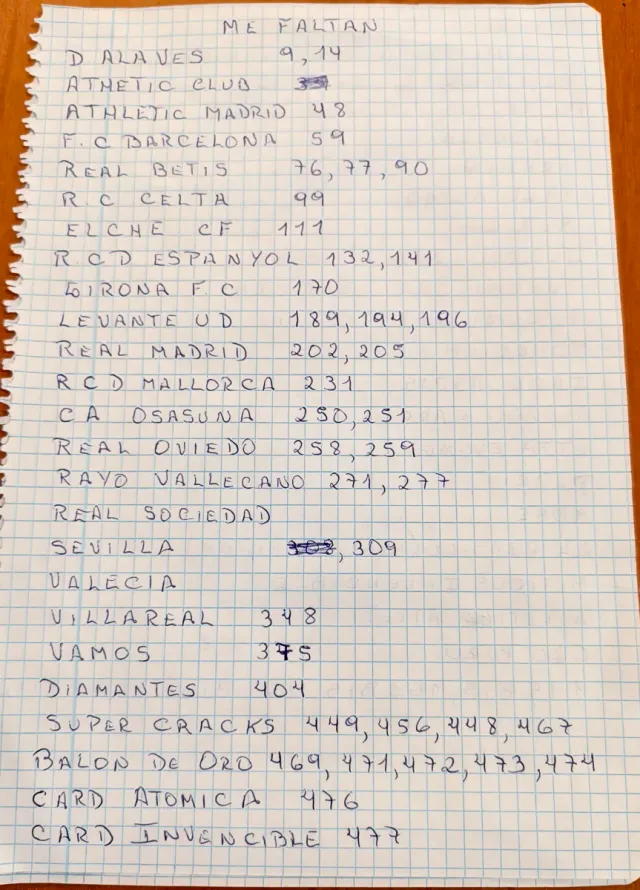 ME FALTAN
D ALAVES 9, 14
ATHETIC CLUB
ATHLETIC MADRID 48
F.C BARCELONA 59
REAL BETIS 76, 77, 90
R.C CELTA 99
ELCHE CF 111
R.C.D ESPANYOL 132, 141
GIRONA F.C 170
LEVANTE UD 189, 194, 196
REAL MADRID 202, 205
RCD MALLORCA 231
CA OSASUNA 250, 251
REAL OVIEDO 258, 259
RAYO VALLECANO 271, 277
REAL SOCIEDAD
SEVILLA , 309
VALECIA
VILLAREAL 348
VAMOS 375
DIAMANTES 404
SUPER CRACKS 449, 456, 448, 467
BALON DE ORO 469, 471, 472, 473, 474
CARD ATOMICA 476
CARD INVENCIBLE 477